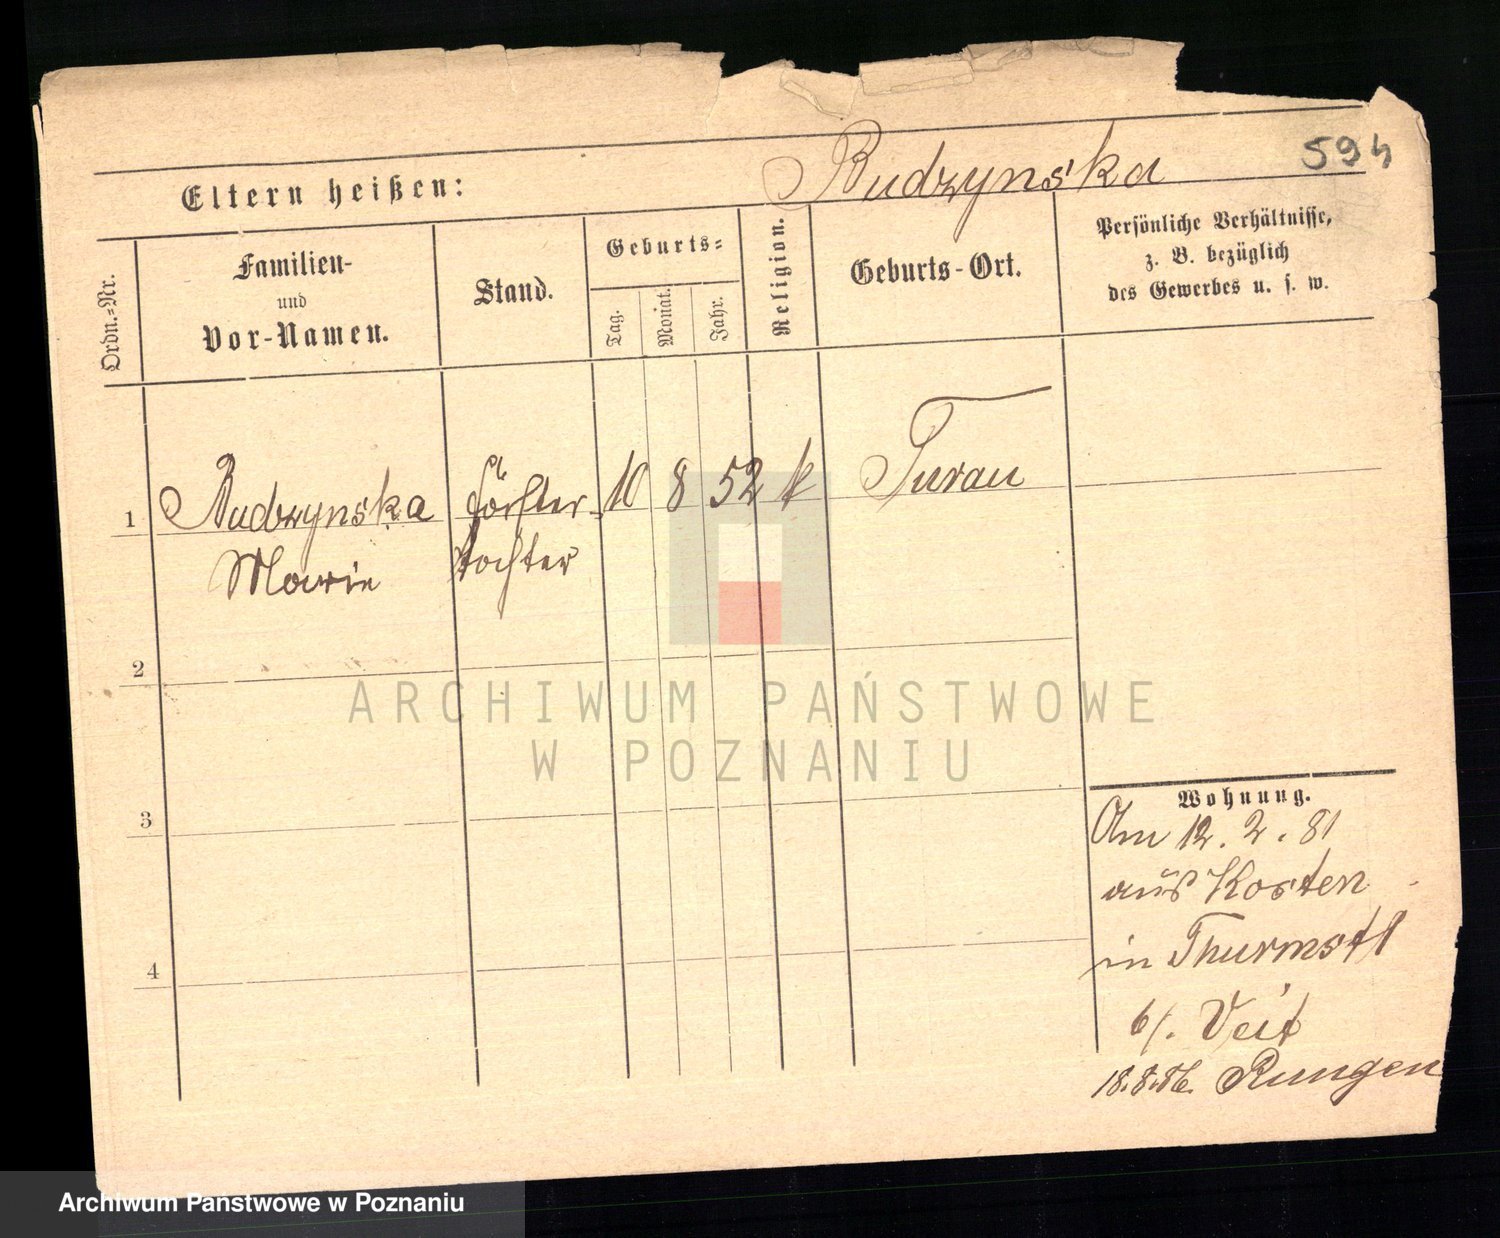 Rudzynska
594
Eltern heißen:
Ordn.-Nr.
Familien-
und
Vor-Namen.
Stand.
Geburts-
Tag.
Monat.
Jahr.
Religion.
Geburts-Ort.
Persönliche Verhältnisse,
z. B. bezüglich
des Gewerbes u. s. w.
1 Rudzynska Förster- 10 8 52 k Turau
Marie tochter
2
3
4
ARCHIWUM PAŃSTWOWE
W POZNANIU
Wohnung.
Am 12. 2. 81
aus Kosten
in Thurmstr
b/. Veit
18.8.86. Rungen
Archiwum Państwowe w Poznaniu